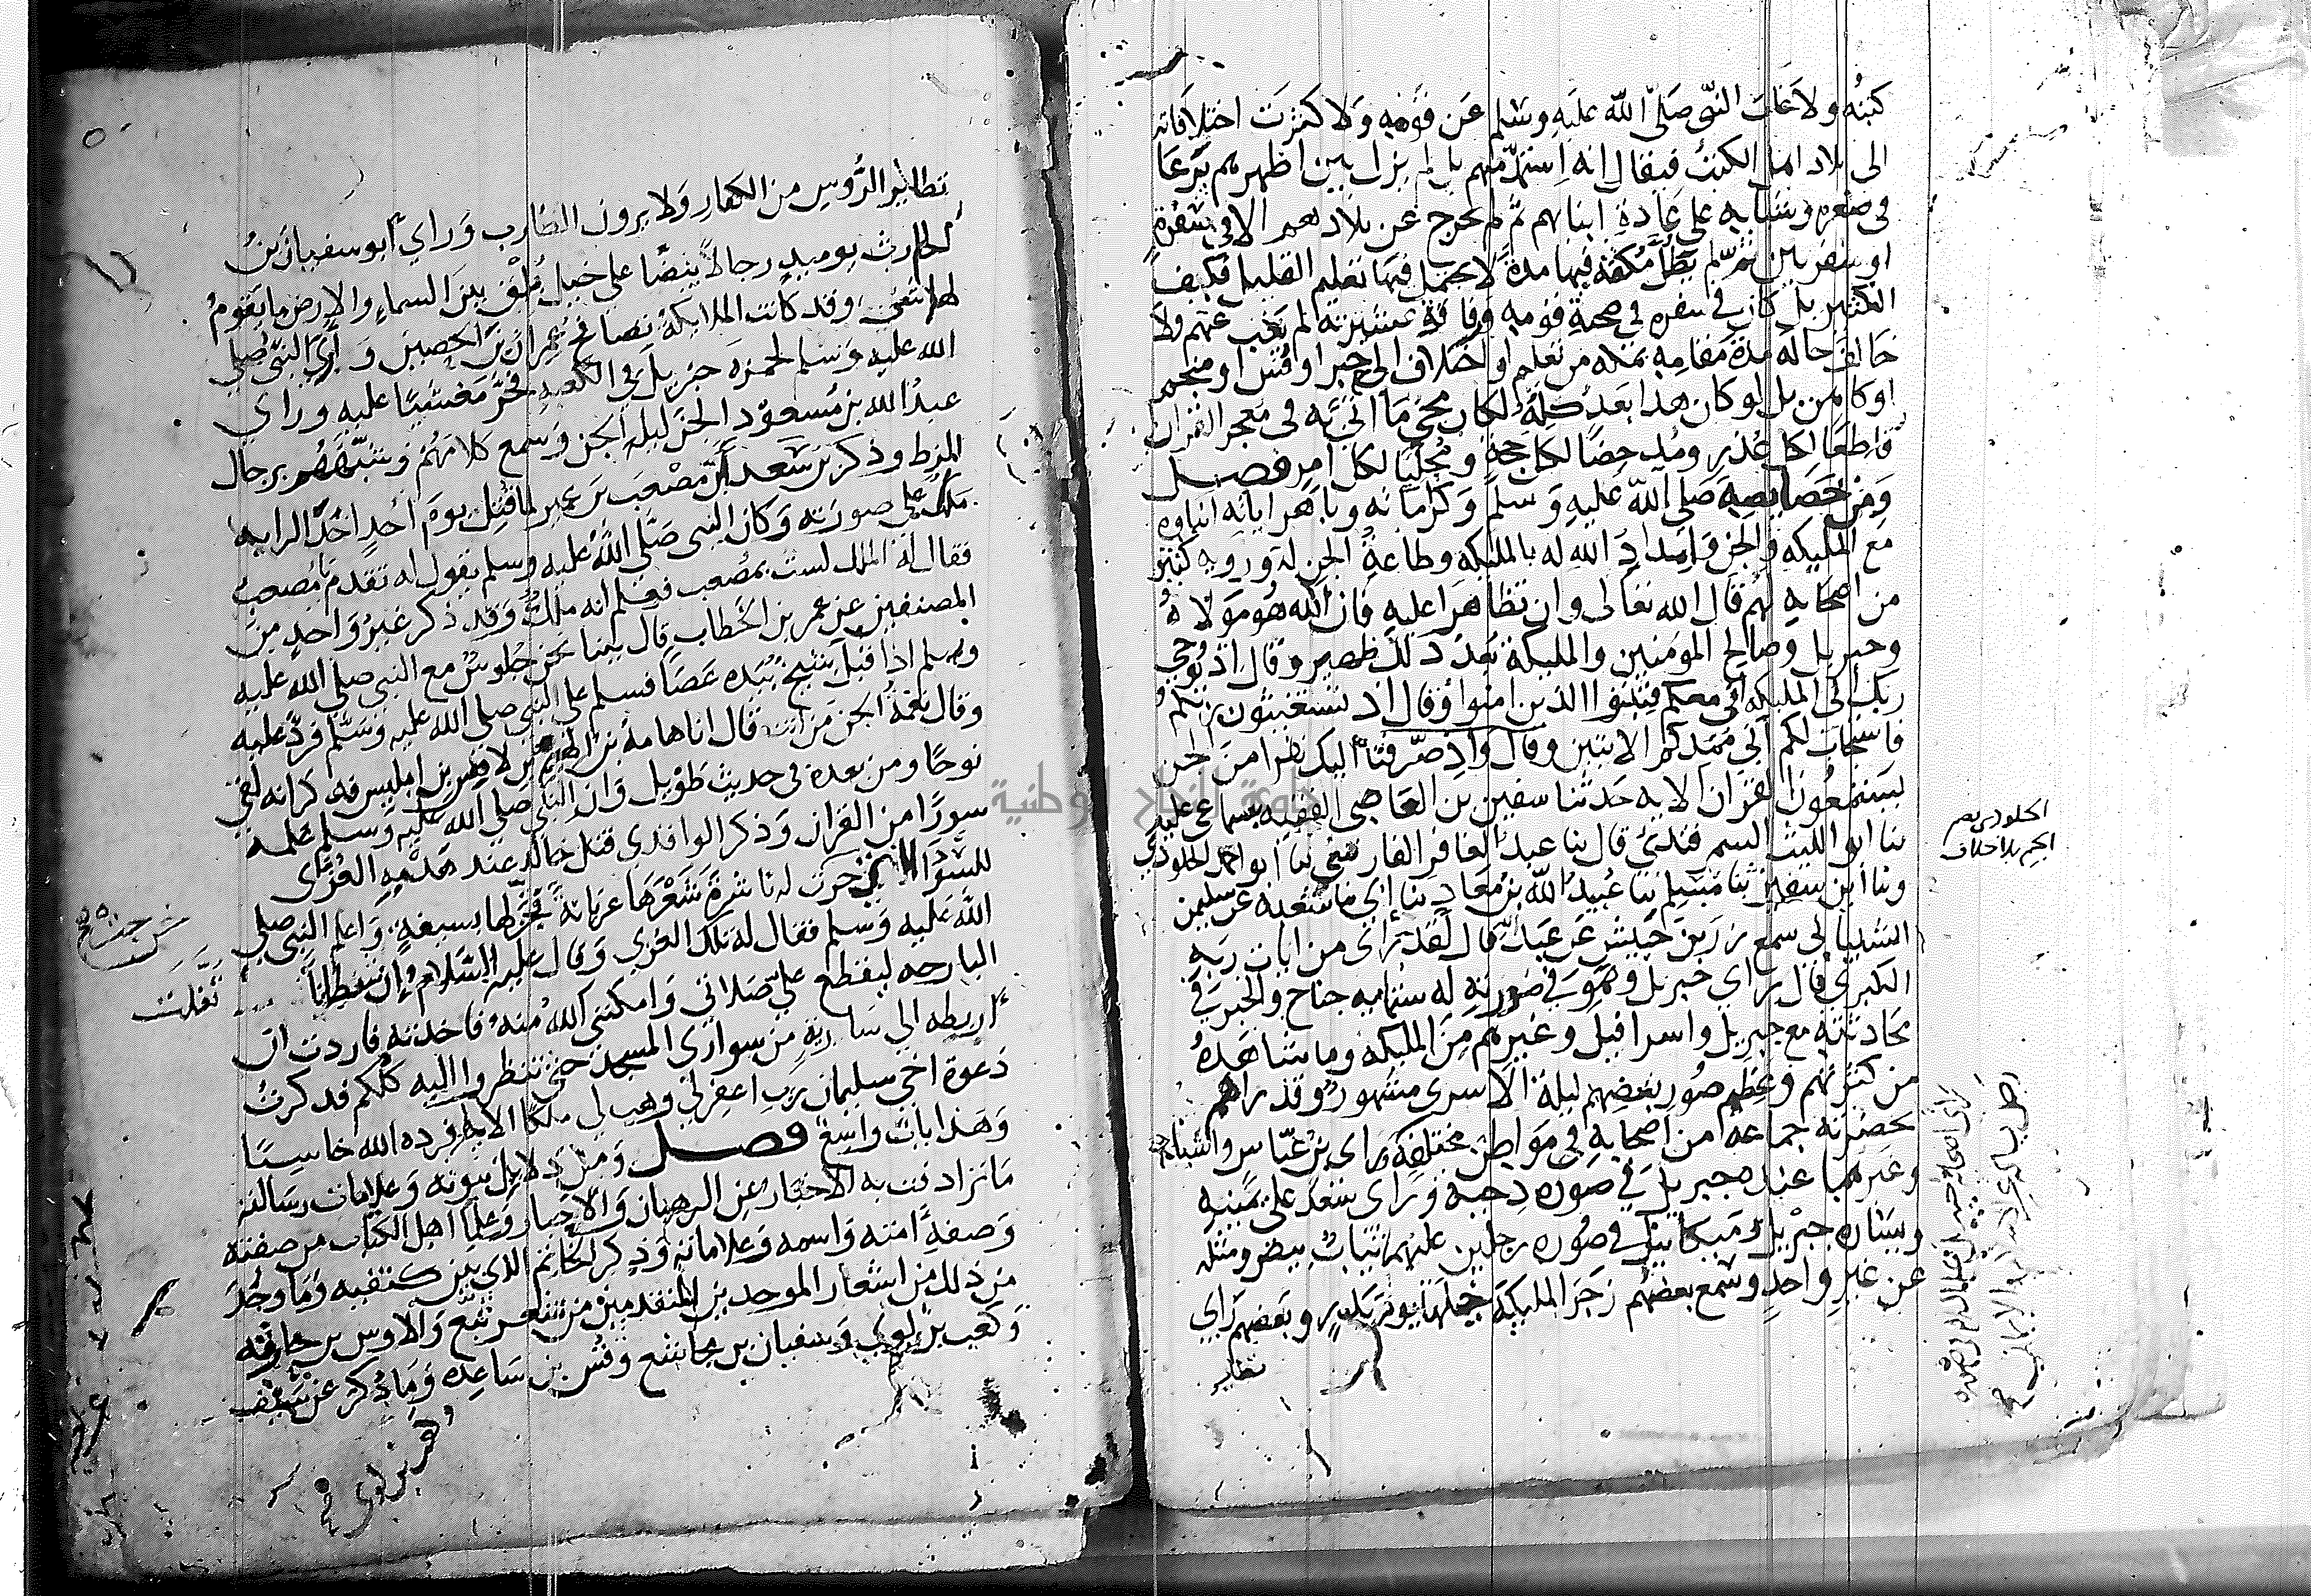 كتبه ولا غاب النبي صلى الله عليه وسلم عن قومه ولا كثرت اختلافاته
الى بلاد اهل الكتب فيقال انه استمد منهم بل لم يزل بين اظهرهم يرعا
في صغره وشبابه على عادة ابنايهم ثم لم يخرج عن بلادهم الا في سفرة
او سفرتين لم يطل مكثه فيها مدة لا يحتمل فيها تعليم القليل فكيف
الكثير بل كان في سفره في صحبة قومه ورفاقة عشيرته لم يغب عنهم ولا
خالف حاله مدة مقامه بمكة من تعلم او اختلاف الى حبر او قس او منجم
او كاهن بل لو كان هذا بعد كله لكان مجي ما اتى به في معجز القران
قاطعا لكل عذر ومدحضا لكل حجة ومجليا لكل امر فصل
ومن خصايصه صلى الله عليه وسلم وكراماته وباهر اياته انباوه
مع المليكه والجن وامداد الله له بالمليكه وطاعة الجن له وروية كثير
من اصحابه لهم قال الله تعالى وان تظاهرا عليه فان الله هو مولاه
وجبريل وصالح المومنين والمليكة بعد ذلك ظهير وقال اذ يوحي
ربك الى المليكه اني معكم فثبتوا الذين امنوا وقال اذ تستغيثون ربكم
فاستجاب لكم اني ممدكم الايتين وقال واذ صرفنا اليك نفرا من الجن
يستمعون القران الايه حدثنا سفين بن العاصي الفقيه بسماعي عليه
نا ابو الليث السمرقندي قال نا عبد الغافر الفارسي نا ابو احمد الجلودي
ونا ابن سفين نا مسلم نا عبيد الله بن معاذ نا ابي نا شعبه عن سليمن
الشيباني سمع زر بن حبيش عن عبد الله قال لقد راى من ايات ربه
الكبرى قال راى جبريل وهو في صورته له ستمايه جناح والخبر في
محادثته مع جبريل واسرافيل وغيرهم من المليكه وما شاهده
من كثرتهم وعظم صور بعضهم ليلة الاسرى مشهور وقد راهم
بحضرته جماعه من اصحابه في مواطن مختلفة راى بن عباس واسامة
وغيرهما عنده جبريل في صوره دحية وراى سعد على يمينه
ويساره جبريل وميكاييل في صوره رجلين عليهما ثياب بيض ومثله
عن غير واحد وسمع بعضهم زجر المليكة خيلها يوم بدر وبعضهم راى
تطاير
الجلودي بضم
الجيم بلا خلاف
تطاير الروس من الكفار ولا يرون الضارب وراى ابو سفيان بن
الحارث يوميذ رجالا بيضا على خيل بلق بين السماء والارض ما يقوم
لها شي وقد كانت الملايكة تصافح عمران بن الحصين وارى النبي صلى
الله عليه وسلم لحمزه جبريل في الكعبه فخر مغشيا عليه وراى
عبد الله بن مسعود الجن ليلة الجن وسمع كلامهم وشبههم برجال
الزط وذكر بن سعد ان مصعب بن عمير لما قتل يوم احد اخذ الرايه
ملك على صورته وكان النبي صلى الله عليه وسلم يقول له تقدم يا مصعب
فقال له الملك لست بمصعب فعلم انه ملك وقد ذكر غير واحد من
المصنفين عن عمر بن الخطاب قال بينا نحن جلوس مع النبي صلى الله عليه
وسلم اذ اقبل شيخ بيده عصا فسلم على النبي صلى الله عليه وسلم فرد عليه
وقال نغمة الجن من انت قال انا هامة بن الهيم بن لاقس بن ابليس فذكر انه لقي
نوحا ومن بعده في حديث طويل وان النبي صلى الله عليه وسلم علمه
سورا من القران وذكر الواقدي قتل خالد عند هدمه العزى
للسودا التي خرجت له ناشرة شعرها عريانة فجزلها بسيفه واعلم النبي صلى
الله عليه وسلم فقال له تلك العزى وقال عليه السلام ان شيطانا
البارحه ليقطع علي صلاتي وامكنني الله منه فاخذته فاردت ان
اربطه الى سارية من سواري المسجد حتى تنظروا اليه كلكم فذكرت
دعوة اخي سليمان رب اغفر لي وهب لي ملكا الايه فرده الله خاسيا
وهذا باب واسع فصل ومن دلايل نبوته وعلامات رسالته
ما ترادفت به الاخبار عن الرهبان والاحبار وعلما اهل الكتاب من صفته
وصفة امته واسمه وعلاماته وذكر الخاتم الذي بين كتفيه وما وجد
من ذلك من اشعار الموحدين المتقدمين من شعر تبع والاوس بن حارثه
وكعب بن لوي وسفيان بن مجاشع وقس بن ساعده وما ذكر عن سيف
تفلت